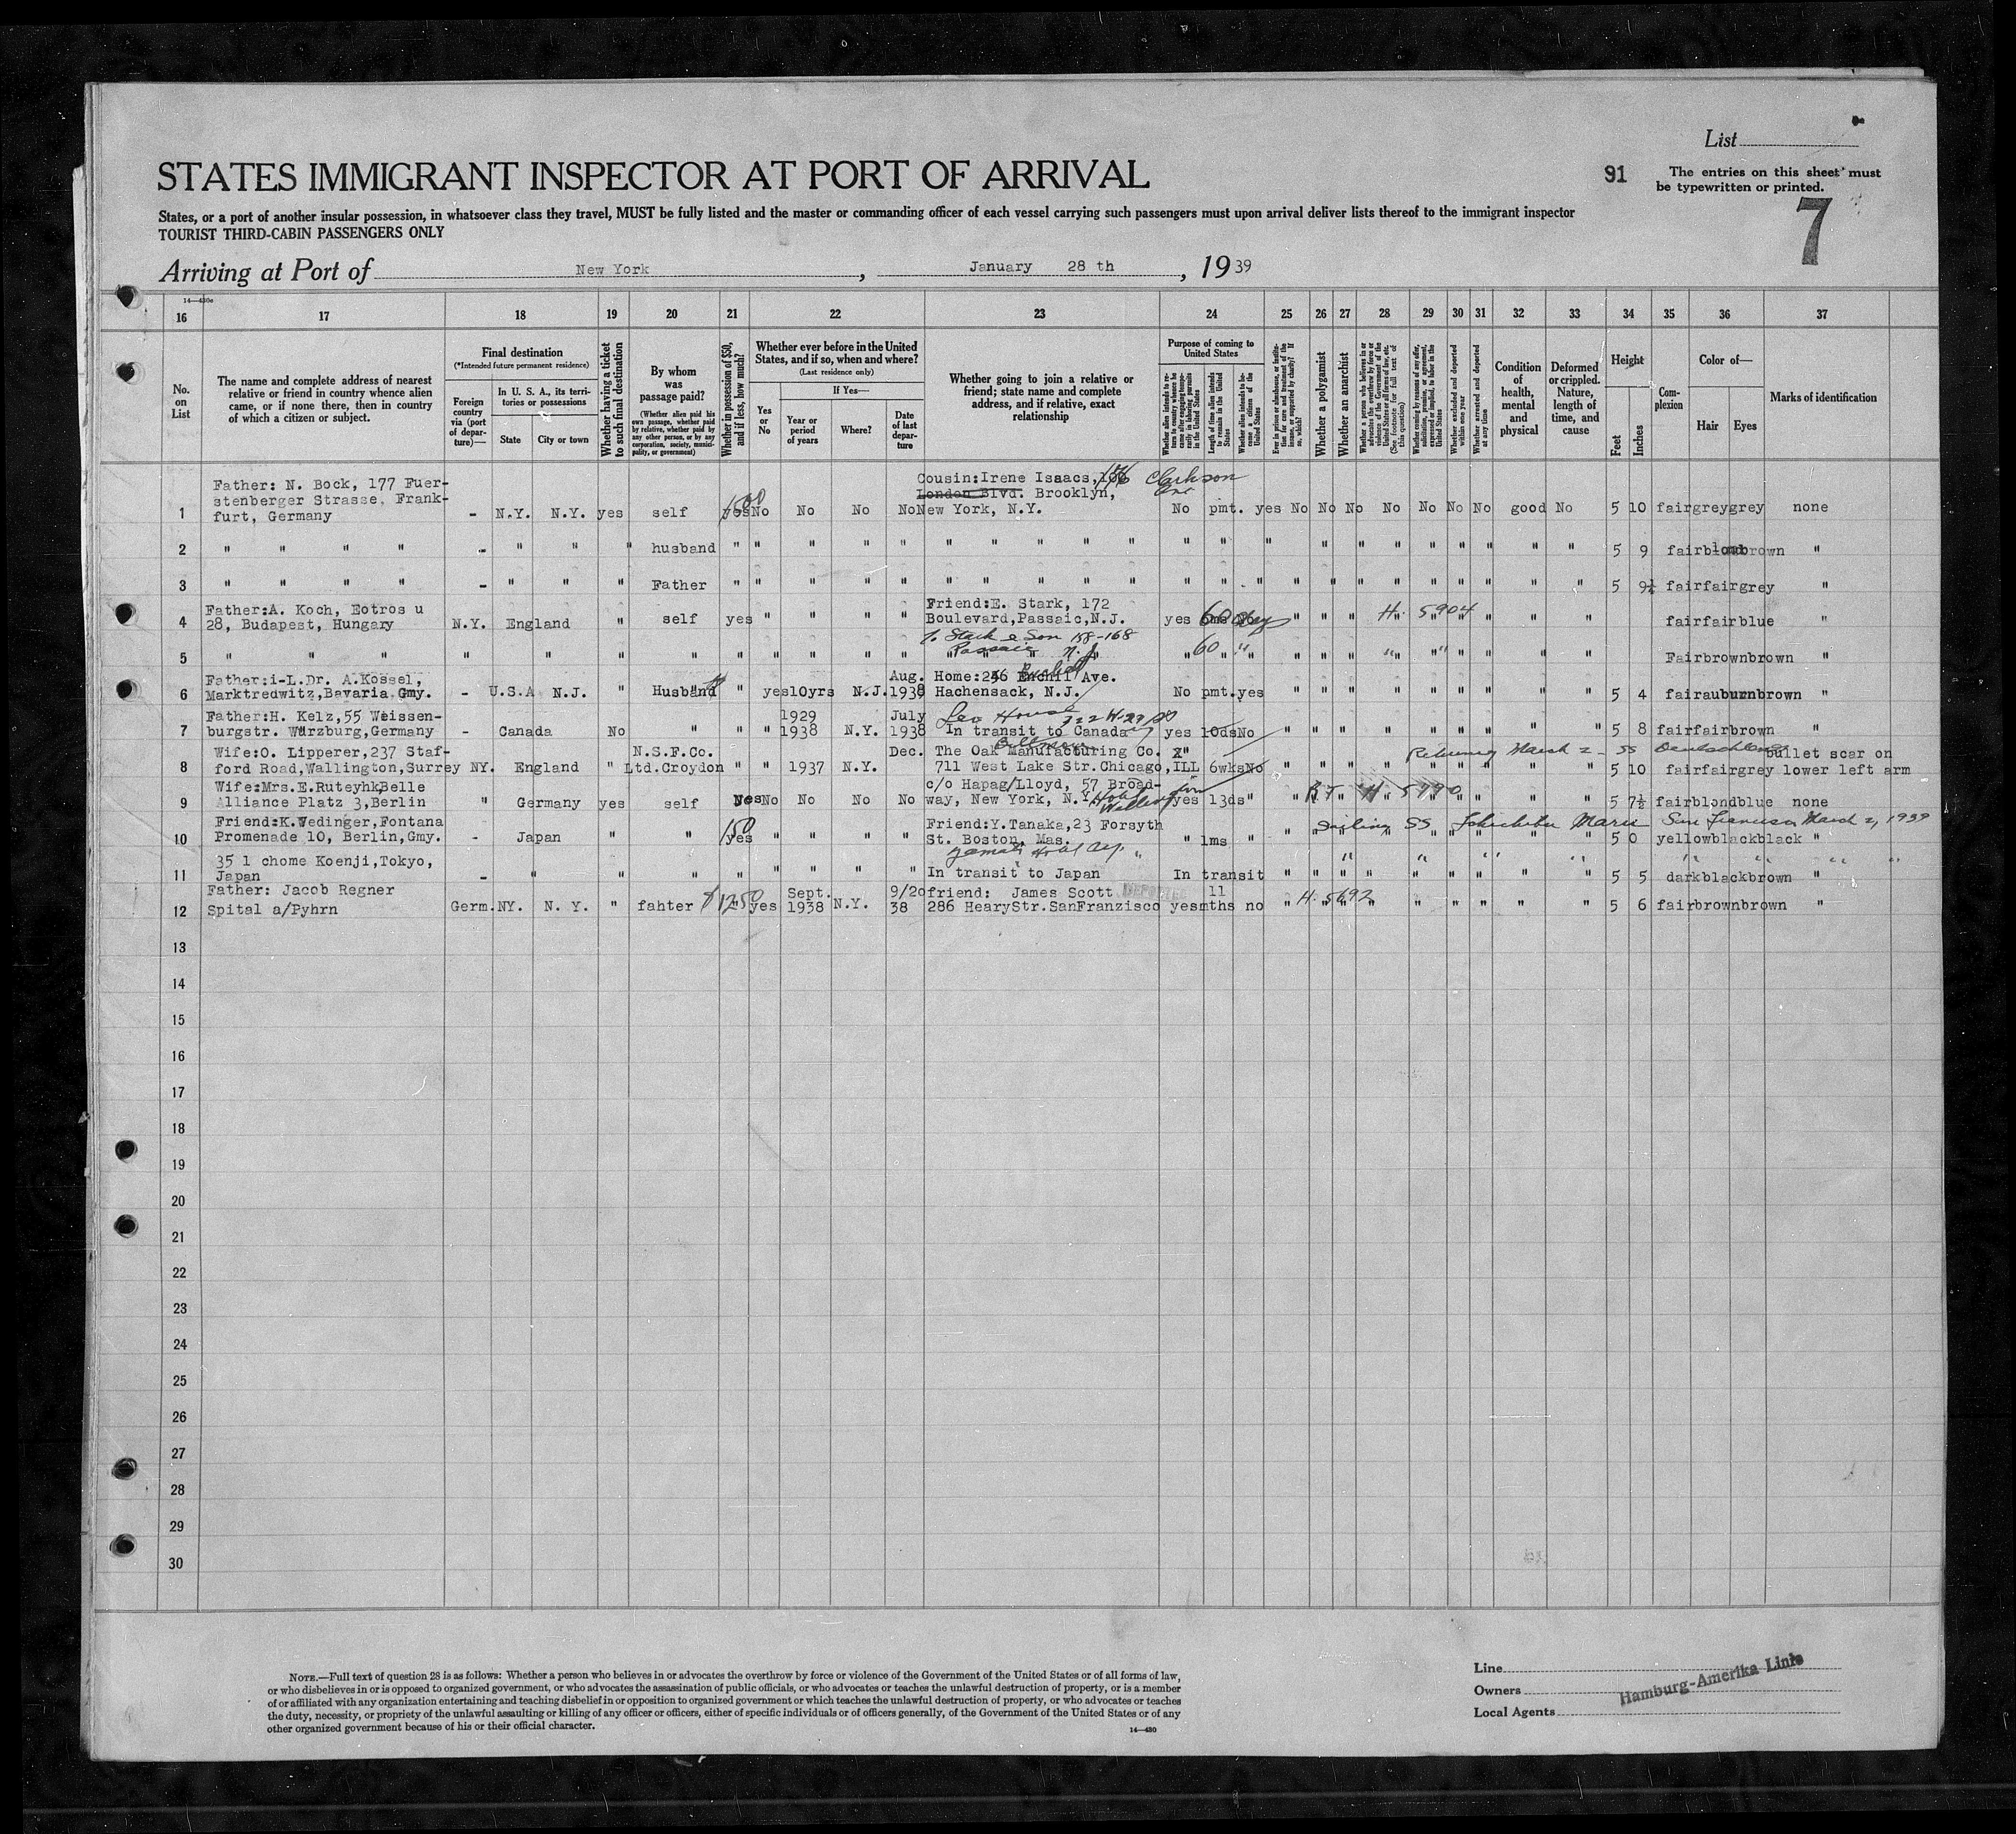 List
STATES IMMIGRANT INSPECTOR AT PORT OF ARRIVAL
91
The entries on this sheet must
be typewritten or printed.
States, or a port of another insular possession, in whatsoever class they travel, MUST be fully listed and the master or commanding officer of each vessel carrying such passengers must upon arrival deliver lists thereof to the immigrant inspector
TOURIST THIRD-CABIN PASSENGERS ONLY
7
Arriving at Port of New York, January 28 th, 1939
16 17 18 19 20 21 22 23 24 25 26 27 28 29 30 31 32 33 34 35 36 37
No. on List
The name and complete address of nearest relative or friend in country whence alien came, or if none there, then in country of which a citizen or subject.
Final destination
(*Intended future permanent residence)
Foreign country via (port of departure)—
In U. S. A., its territories or possessions
State
City or town
Whether having a ticket to such final destination
By whom was passage paid?
(Whether alien paid his own passage, whether paid by relative, whether paid by any other person, or by any corporation, society, municipality, or government)
Whether in possession of $50, and if less, how much?
Whether ever before in the United States, and if so, when and where?
(Last residence only)
Yes or No
If Yes—
Year or period of years
Where?
Date of last departure
Whether going to join a relative or friend; state name and complete address, and if relative, exact relationship
Purpose of coming to United States
Length of time alien intends to remain in the United States
Whether alien intends to become a citizen of the United States
Whether a polygamist
Whether an anarchist
Whether excluded and deported within one year
Whether arrested and deported at any time
Condition of health, mental and physical
Deformed or crippled. Nature, length of time, and cause
Height
Feet
Inches
Complexion
Color of—
Hair
Eyes
Marks of identification
Father: N. Bock, 177 Fuer- Cousin:Irene Isaacs, Clarkson
stenberger Strasse, Frank- London Blvd. Brooklyn,
1 furt, Germany - N.Y. N.Y. yes self yes No No No No New York, N.Y. No pmt. yes No No No No No No No good No 5 10 fair grey grey none
2 " " " " - " " " husband " " " " " " " " " " " " " " " " " " " " " " " 5 9 fair brown "
3 " " " " - " " " Father " " " " " " " " " " " " " " " " " " " " " " " 5 9½ fair fair grey "
Father:A. Koch, Eotros u Friend:E. Stark, 172
4 28, Budapest, Hungary N.Y. England " self yes " " " " Boulevard,Passaic,N.J. yes 60 days " " " H. 5904 " " " fair fair blue "
Stark & Son 158-168
5 " " " " " " " " " " " " Passaic N.J. " 60 " " " " " " " " " " " Fair brown brown "
Father:i-L.Dr. A.Kossel, Aug. Home:246 Ave.
6 Marktredwitz,Bavaria Gmy. - U.S.A N.J. " Husband " yes 10yrs N.J. 1938 Hachensack, N.J. No pmt. yes " " " " " " " " " 5 4 fair auburn brown "
Father:H. Kelz,55 Weissen- 1929 July Leo House
7 burgstr. Würzburg,Germany - Canada No " " " 1938 N.Y. 1938 In transit to Canada yes 10ds No " " " " " " " " " 5 8 fair fair brown "
Wife:O. Lipperer,237 Staf- N.S.F.Co. Dec. The Oak Manufacturing Co. Returning March 2 - SS Deutschland bullet scar on
8 ford Road,Wallington,Surrey NY. England " Ltd.Croydon " " 1937 N.Y. 711 West Lake Str.Chicago,ILL 6wks No " " " " " " " " " 5 10 fair fair grey lower left arm
Wife:Mrs.E.Ruteyhk,Belle c/o Hapag/Lloyd, 57 Broad-
9 Alliance Platz 3,Berlin " Germany yes self yes No No No No way, New York, N.Y. yes 13ds " " H 5790 " " 5 7½ fair blond blue none
Friend:K.Wedinger,Fontana 150 Friend:Y.Tanaka,23 Forsyth Sailing SS Chichibu Maru San Francisco March 2, 1939
10 Promenade 10, Berlin,Gmy. - Japan " " yes " " " " St. Boston, Mas. " 1ms " " " " " " " " " " 5 0 yellow black black "
35 1 chome Koenji,Tokyo,
11 Japan - " " " " " " " " In transit to Japan In transit " " " " " " " " " 5 5 dark black brown "
Father: Jacob Regner Sept. 9/20 friend: James Scott 11
12 Spital a/Pyhrn Germ. NY. N. Y. " fahter $1250 yes 1938 N.Y. 38 286 HearyStr.SanFranzisco yes mths no " H. 5692 " " " " " " 5 6 fair brown brown "
13
14
15
16
17
18
19
20
21
22
23
24
25
26
27
28
29
30
NOTE.—Full text of question 28 is as follows: Whether a person who believes in or advocates the overthrow by force or violence of the Government of the United States or of all forms of law,
or who disbelieves in or is opposed to organized government, or who advocates the assassination of public officials, or who advocates or teaches the unlawful destruction of property, or is a member
of or affiliated with any organization entertaining and teaching disbelief in or opposition to organized government or which teaches the unlawful destruction of property, or who advocates or teaches
the duty, necessity, or propriety of the unlawful assaulting or killing of any officer or officers, either of specific individuals or of officers generally, of the Government of the United States or of any
other organized government because of his or their official character.
14—430
Line
Owners
Local Agents
Hamburg-Amerika Linie